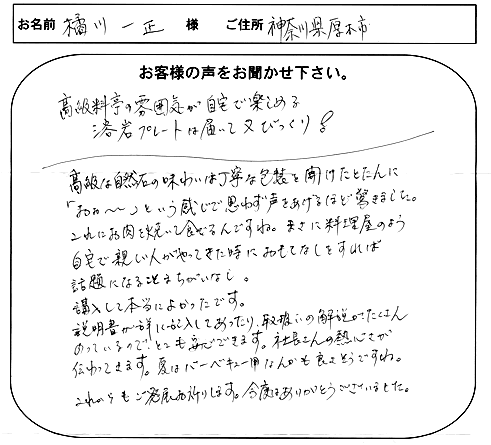 お名前 橘川 一正 様 ご住所 神奈川県厚木市
お客様の声をお聞かせ下さい。
高級料亭の雰囲気が自宅で楽しめる
溶岩プレートは届いて又びっくり!
高級な自然石の味わいは丁寧な包装を開けたとたんに
「おぉ~~」という感じで思わず声をあげるほど驚きました。
これにお肉を焼いて食べるんですね。まさに料理屋のよう
自宅で親しい人がやってきた時におもてなしをすれば
話題になる事まちがいなし。
購入して本当によかったです。
説明書が詳しく記入してあったり、取扱いの解説がたくさん
のっているので、とても安心できます。社長さんの熱心さが
伝わってきます。夏はバーベキュー用なんかも良さそうですね。
これからもご発展お祈りします。今度はありがとうございました。